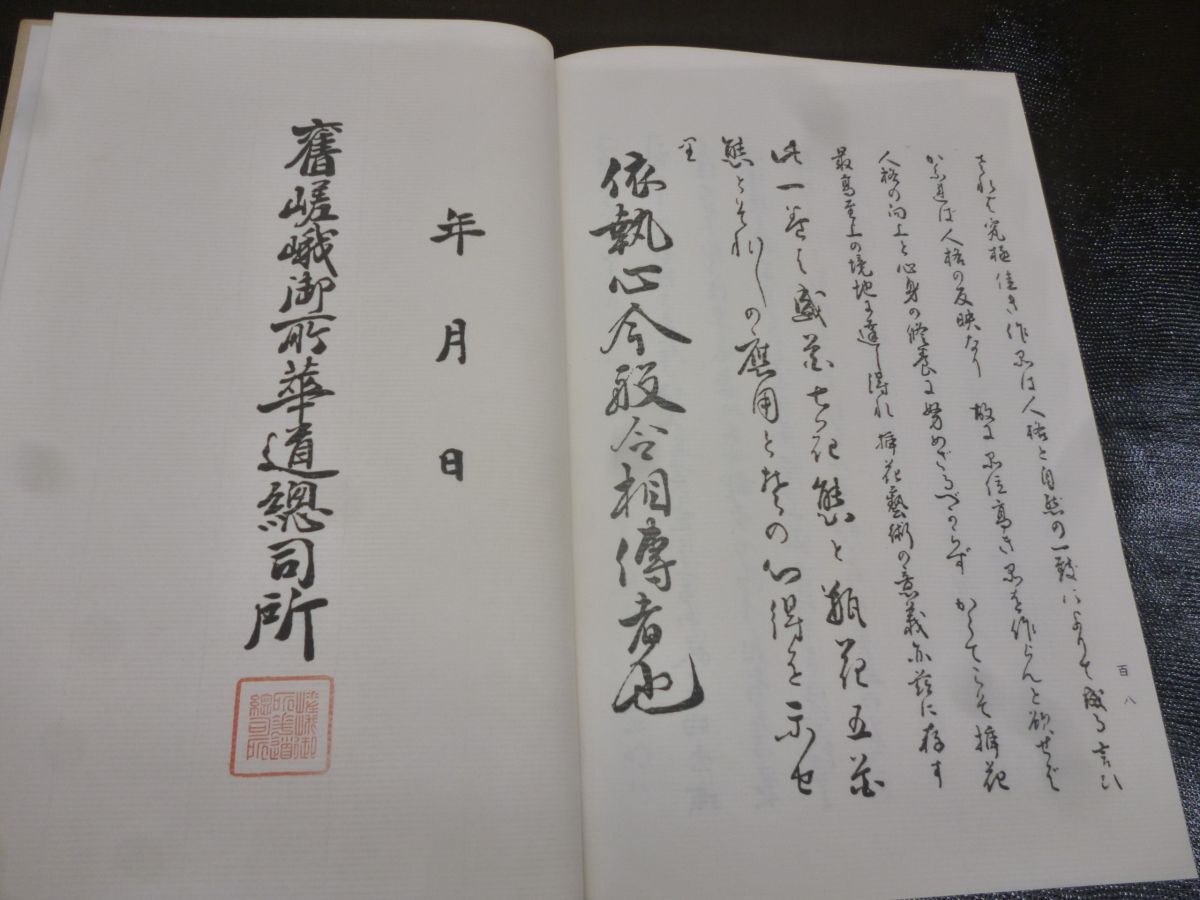 されば究極佳き作品は人格と自然の一致によりて成る 言ひ
かふれば人格の反映なり 故に品位高き品を作らんと欲せば
人格の向上と心身の修養に努めざるべからず かくてこそ挿花
最高至上の境地に達し得れ 挿花藝術の意義亦茲に存す
此一巻は盛花七花態と瓶花五花
態とそれ〳〵の應用と其の心得を示せ
里
依執心今般令相傳者也
百八
年月日
舊嵯峨御所華道總司所
嵯峨御
所華道
總司所